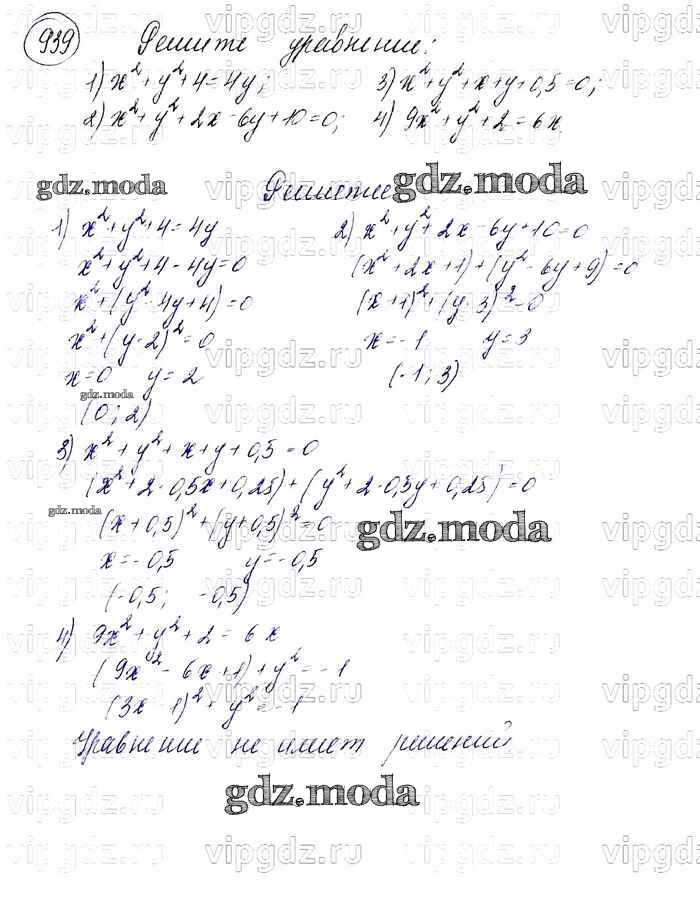 939 Решите уравнение:
1) x²+y²+4=4y; 3) x²+y²+x+y+0,5=0;
2) x²+y²+2x-6y+10=0; 4) 9x²+y²+2=6x.
gdz.moda Решение gdz.moda
1) x²+y²+4=4y 2) x²+y²+2x-6y+10=0
x²+y²+4-4y=0 (x²+2x+1)+(y²-6y+9)=0
x²+(y²-4y+4)=0 (x+1)²+(y-3)²=0
x²+(y-2)²=0 x=-1 y=3
x=0 y=2 (-1;3)
gdz.moda
(0;2)
3) x²+y²+x+y+0,5=0
(x²+2·0,5x+0,25)+(y²+2·0,5y+0,25)=0
gdz.moda (x+0,5)²+(y+0,5)²=0 gdz.moda
x=-0,5 y=-0,5
(-0,5; -0,5)
4) 9x²+y²+2=6x
(9x²-6x+1)+y²=-1
(3x 1)²+y²=-1
Уравнение не имеет решений
gdz.moda
vipgdz.ru